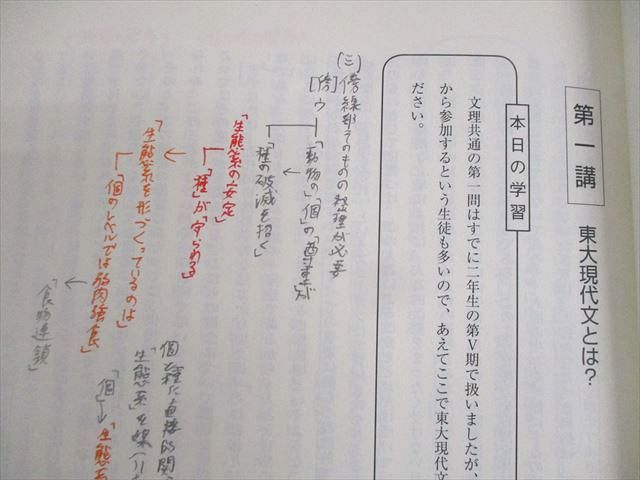 第一講 東大現代文とは?
本日の学習
文理共通の第一問はすでに二年生の第Ⅴ期で扱いましたが、
から参加するという生徒も多いので、あえてここで東大現代文
ださい。
(三)傍線部そのものの整理が必要
[傍]ウ
「動物の」「個」の「尊重」が
「種の破滅を招く」
「生態系の安定」
「種」が「守られる」
「生態系を形づくっているのは」
「個のレベルでは弱肉強食」
「食物連鎖」
個と種に直接的関
「生態系」を媒
「個」→「生態系